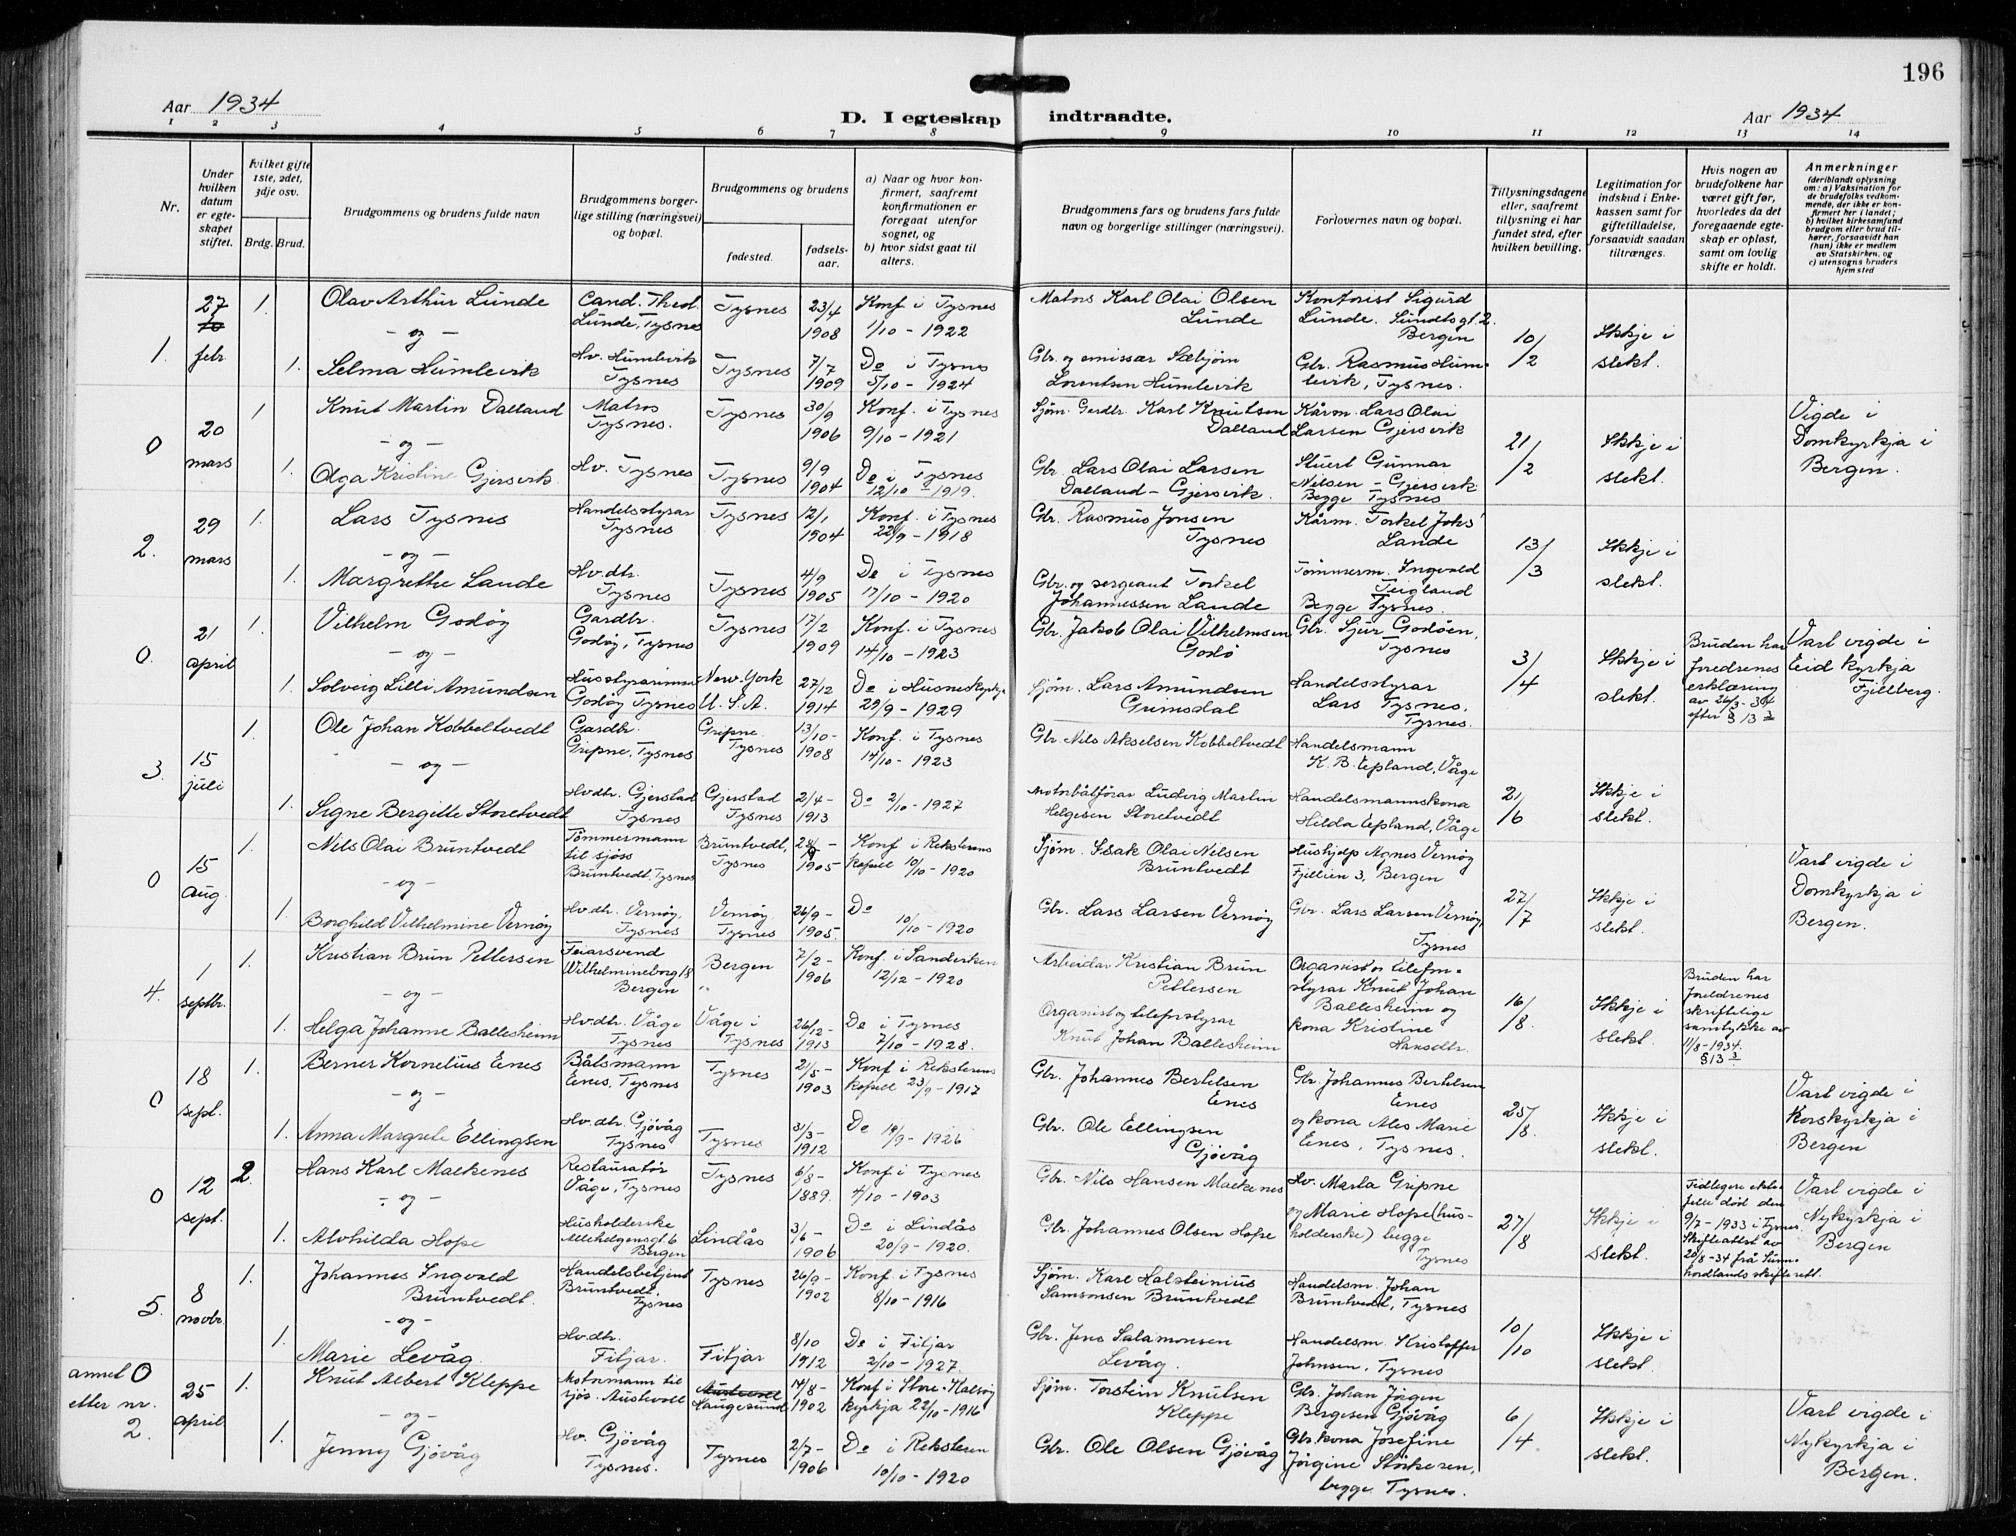 196
Aar 1934
D. I egteskap indtraadte.
Aar 1934
1 2 3 4 5 6 7 8 9 10 11 12 13 14
Nr.
Under hvilken datum er egteskapet stiftet.
Hvilket gifte 1ste, 2det, 3dje osv.
Brdg. Brud.
Brudgommens og brudens fulde navn
Brudgommens borgerlige stilling (næringsvei) og bopæl.
Brudgommens og brudens
fødested.
fødselsaar.
a) Naar og hvor konfirmert, saafremt konfirmationen er foregaat utenfor sognet, og
b) hvor sidst gaat til alters.
Brudgommens fars og brudens fars fulde navn og borgerlige stillinger (næringsvei).
Forlovernes navn og bopæl.
Tillysningsdagene eller, saafremt tillysning ei har fundet sted, efter hvilken bevilling.
Legitimation for indskud i Enkekassen samt for giftetilladelse, forsaavidt saadan tiltrænges.
Hvis nogen av brudefolkene har været gift før, hvorledes da det foregaaende egteskap er opløst, samt om lovlig skifte er holdt.
Anmerkninger (deriblandt oplysning om: a) Vaksination for de brudefolks vedkommende, der ikke er konfirmert her i landet; b) hvilket kirkesamfund brudgom eller brud tilhører, forsaavidt han (hun) ikke er medlem av Statskirken, og c) utensogns bruders hjemsted
1. 27 febr 1. Olav Arthur Lunde Cand. Theol. Lunde, Tysnes Tysnes 23/4 1908 Konf. i Tysnes 1/10 - 1922 Matros Karl Olai Olsen Lunde Kontorist Sigurd Lunde. Sundtsgt. 2. Bergen 10/2 Ikkje i slekt.
- og -
1. Selma Humlevik Hv. Humlevik Tysnes Tysnes 7/7 1909 Do i Tysnes 5/10 - 1924 Gbr. og emissær Sæbjörn Lorentsen Humlevik Gbr. Rasmus Humlevik, Tysnes.
0 20 mars 1 Knut Martin Dalland Matros Tysnes. Tysnes 30/9 1906 Konf. i Tysnes 9/10 - 1921 Sjøm. Gardbr. Karl Knutsen Dalland Kårm. Lars Olai Larsen Gjersvik 21/2 Ikkje i slekt. Vigde i Domkyrkja i Bergen.
- og -
1. Olga Kristine Gjersvik Hv. Tysnes Tysnes 9/9 1904 Do i Tysnes 12/10 - 1919. Gbr. Lars Olai Larsen Dalland - Gjersvik. Stuert Gunnar Nilsen - Gjersvik Begge Tysnes
2. 29 mars 1. Lars Tysnes Handelsstyrar Tysnes Tysnes 12/1 1904 Konf. i Tysnes 22/9 - 1918 Gbr. Rasmus Jonsen Tysnes Kårm. Torkel Johs' Lande 13/3 Ikkje i slekt.
- og -
1. Margrethe Lande Hv. dtr. Tysnes Tysnes 4/9 1905 Do i Tysnes 17/10 - 1920 Gbr. og sergeant Torkel Johannessen Lande Tömmerm. Ingvald Teigland Begge Tysnes.
0. 21 april 1. Vilhelm Godöy Gardbr. Godöy, Tysnes Tysnes 17/2 1909 Konf. i Tysnes 14/10 - 1923 Gbr. Jakob Olai Vilhelmsen Godö Gbr. Sjur Godöen, Tysnes 3/4 Ikkje i slekt. Bruden har foredrenes erklæring av 26/3 - 34 efter § 13 3 Vart vigde i Eid kyrkja Fjellberg.
- og -
1. Solveig Lilli Amundsen Husstyrarinna Godöy Tysnes New. York U. S. A. 27/12 1914 Do i Husneskyrkje 29/9 - 1929 Sjøm. Lars Amundsen Grimsdal Handelsstyrar Lars Tysnes, Tysnes.
3. 15 juli 1. Ole Johan Kobbeltvedt Gardbr. Gripne, Tysnes Gripne. Tysnes 13/10 - 1908 Konf. i Tysnes 14/10 - 1923 Gbr. Nils Akselsen Kobbeltvedt Handelsmann K. B. Epland, Våge
- og -
1. Signe Bergitte Storetvedt Hv. dtr. Gjerstad Tysnes Gjerstad Tysnes 2/4 - 1913 Do 2/10 - 1927 Motorbåtförar Ludvig Martin Helgesen Storetvedt Handelsmannskona Hilda Epland, Våge 21/6 Ikkje i slekt.
0 15 Aug. 1. Nils Olai Bruntvedt Tömmermann til sjöss Bruntvedt, Tysnes Bruntvedt, Tysnes 1905 Konf. i Rekstrens kapell 10/10 - 1920 Sjøm. Isak Olai Nilsen Bruntvedt Hushjelp Agnes Vernöy Fjellien 3, Bergen 27/7 Ikkje i slekt. Vart vigde i Domkyrkja i Bergen.
- og -
1. Borghild Vilhelmine Vernöy Hv. dtr. Vernöy, Tysnes Vernöy, Tysnes 26/9 - 1905. Do 10/10 - 1920 Gbr. Lars Larsen Vernöy Gbr. Lars Larsen Vernöy, Tysnes
4. 1 septbr. 1. Kristian Brun Pettersen Feiarsvend Wilhelmineborg 18 Bergen Bergen " 7/2 - 1906 Konf. i Sandviken 12/12 - 1920 Arbeidar Kristian Brun Pettersen Organist og telefonstyrar Knut Johan Ballesheim og kona Kristine Hansdtr. 16/8. Ikkje i slekt. Bruden har foreldrenes skriftelige samtykke av 11/8 - 1934. § 13 3
- og -
1. Helga Johanne Ballesheim Hv. dtr. Våge Tysnes Våge i Tysnes 26/12 - 1913 Do i Tysnes 7/10 - 1928. Organist og telefonstyrar Knut Johan Ballesheim
0 18 sept. 1. Berner Kornelius Enes Båtsmann Enes, Tysnes Tysnes 2/5 - 1903 Konf. i Rekstrens kapell 23/9 - 1917 Gbr. Johannes Bertelsen Enes Gbr. Johannes Bertelsen Enes og kona Ales Marie Enes, Tysnes. 25/8. Ikkje i slekt. Vart vigde i Korskyrkja i Bergen
- og -
1. Anna Margrete Ellingsen Hv. dtr. Gjövåg Tysnes Tysnes 31/3 - 1912 Do 19/9 - 1926 Gbr. Ole Ellingsen Gjövåg
0 12 sept. 2. Hans Karl Malkenes Restauratør Våge, Tysnes Tysnes 6/8 - 1889. Konf. i Tysnes 4/10 - 1903 Gbr. Nils Hansen Malkenes Hv. Marta Gripne og Marie Hope (husholderske) begge Tysnes 27/8 Ikkje i slekt. Tidligere ektefelle död den 9/7 - 1933 i Tysnes. Skifteattest av 28/8 - 34 frå Sunnhordlands skifterett. Vart vigde i Nykyrkja i Bergen
- og -
1. Alvhilda Hope Husholderske Allehelgensgt. 6 Bergen Lindås 3/6 - 1906 Do i Lindås 20/9 - 1920.
Gbr. Johannes Olsen Hope
5. 8 novbr. 1. Johannes Ingvald Bruntvedt. Handelsbetjent Bruntvedt, Tysnes Tysnes 26/9 - 1902 Konf. i Tysnes 8/10 - 1916 Sjøm. Karl Halsteinius Samsonsen Bruntvedt Handelsm. Johan Bruntvedt, Tysnes 10/10 Ikkje i slekt.
- og -
1. Marie Levåg. Hv. dtr. Fitjar. Fitjar 8/10 1912 Do i Fitjar 2/10 - 1927. Gbr. Jens Salamonsen Levåg. Handelsm. Kristoffer Johnsen, Tysnes
annet 0 etter nr. 2. 25 april 1. Knut Albert Kleppe Motormann til sjös. Austevoll Austevoll Haugesund 14/8 - 1902 Konf. i Store-Kalsöy kyrkja 22/10 - 1916 Sjøm. Torstein Knutsen Kleppe Gbr. Johan Jörgen Bergesen Gjövåg 6/4. Ikkje i slekt. Vart vigde i Nykyrkja i Bergen.
- og -
1. Jenny Gjövåg Hv. Gjövåg Tysnes. Tysnes 2/7 - 1906 Do i Reksteren 10/10 - 1920 Gbr. Ole Olsen Gjövåg Gbr. kona Josefine Jörgine Störkersen, begge Tysnes.